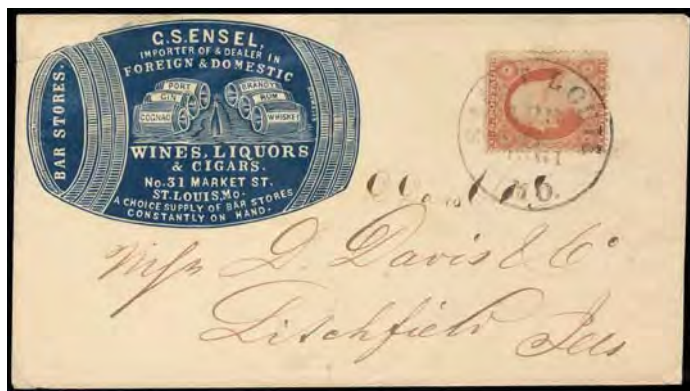 BAR STORES.
C.S. ENSEL,
IMPORTER OF & DEALER IN
FOREIGN & DOMESTIC
PORT
GIN
COGNAC
BRANDY
RUM
WHISKEY
WINES, LIQUORS
& CIGARS.
No. 31 MARKET ST.
ST. LOUIS, Mo.
A CHOICE SUPPLY OF BAR STORES
CONSTANTLY ON HAND.
SAINT LOUIS
1861
Mo.
D. Davis & Co
Litchfield
Ills